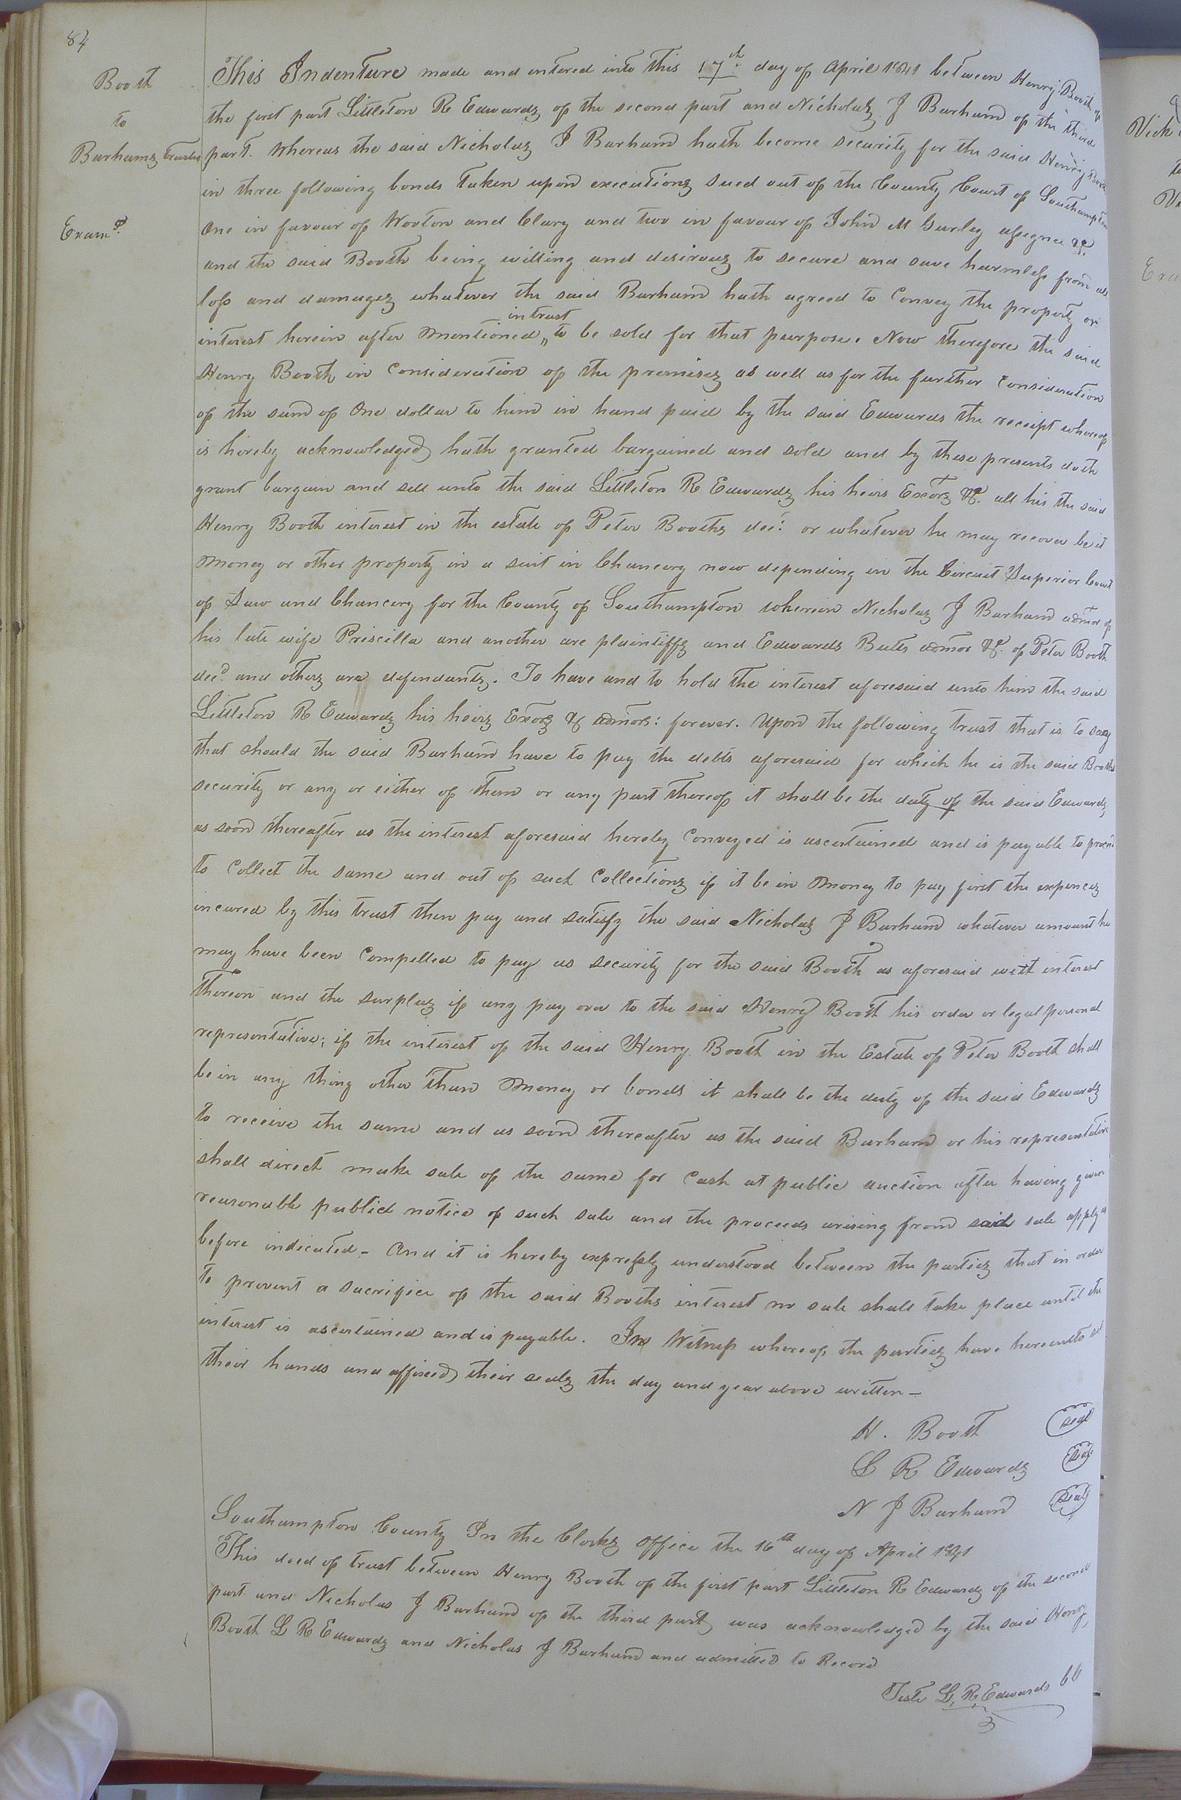 84
Booth
to
Barhams Trustee
Examd.
This Indenture made and entered into this 17th day of April 1841 between Henry Booth of
the first part Littleton R Edwards of the second part and Nicholas J Barham of the third
part. Whereas the said Nicholas J Barham hath become security for the said Henry Booth
in three following bonds taken upon executions sued out of the County Court of Southampton
One in favour of Wooton and Clary and two in favour of John M Gurley assignee &c.
and the said Booth being willing and desirous to secure and save harmless from all
loss and damages whatever the said Barham hath agreed to Convey the property or
intrust
interest herein after mentioned, to be sold for that purpose. Now therefore the said
Henry Booth in Consideration of the premises as well as for the further Consideration
of the sum of One dollar to him in hand paid by the said Edwards the receipt whereof
is hereby acknowledged, hath granted bargained and sold and by these presents doth
grant bargain and sell unto the said Littleton R Edwards his heirs Exors &c. all his the said
Henry Booth interest in the estate of Peter Booths dec: or whatever he may recover be it
money or other property in a suit in Chancery now depending in the Circuit Superior Court
of Law and Chancery for the County of Southampton wherein Nicholas J Barham admor of
his late wife Priscilla and another are plaintiffs and Edwards Butts admor &c. of Peter Booth
decd. and others are defendants. To have and to hold the interest aforesaid unto him the said
Littleton R Edwards his heirs Exors & admors: forever. Upon the following trust that is to say
that should the said Barham have to pay the debts aforesaid for which he is the said Booths
security or any or either of them or any part thereof it shall be the duty of the said Edwards
as soon thereafter as the interest aforesaid hereby Conveyed is ascertained and is payable to proceed
to Collect the same and out of such Collections if it be in money to pay first the expences
incured by this trust then pay and satisfy the said Nicholas J Barham whatever amount he
may have been Compelled to pay as security for the said Booth as aforesaid with interest
thereon and the surplus if any pay over to the said Henry Booth his order or legal personal
representative; if the interest of the said Henry Booth in the Estate of Peter Booth shall
be in any thing other than money or bonds it shall be the duty of the said Edwards
to receive the same and as soon thereafter as the said Barham or his representative
shall direct make sale of the same for Cash at public auction after having given
reasonable public notice of such sale and the proceeds arising from said sale apply as
before indicated - And it is hereby expressly understood between the parties that in order
to prevent a sacrifice of the said Booths interest no sale shall take place until the
interest is ascertained and is payable. In Witness whereof the parties have hereunto set
their hands and affixed their seals the day and year above written -
H. Booth Seal
L R Edwards Seal
N J Barham Seal
Southampton County In the Clerks office the 16th day of April 1841
This deed of trust between Henry Booth of the first part Littleton R Edwards of the second
part and Nicholas J Barham of the third part was acknowledged by the said Henry
Booth L R Edwards and Nicholas J Barham and admitted to Record
Teste L. R. Edwards CC